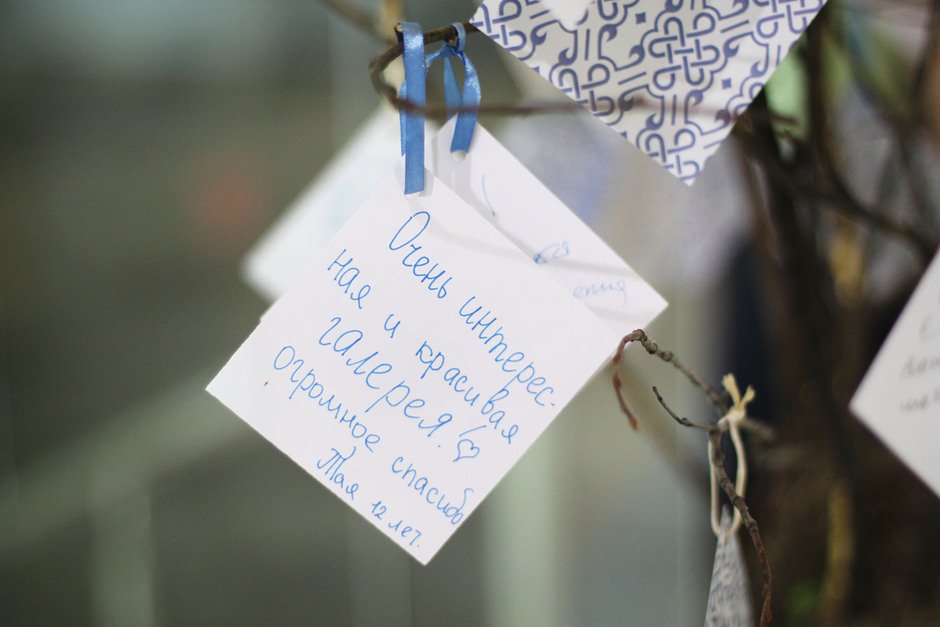 Очень интерес-
ная и красивая
галерея! ♡
огромное спасибо
Тая 12 лет.